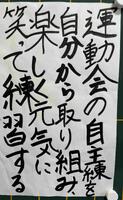 運動会の自主練を
自分から取り組み、
楽しく元気に
笑って練習する